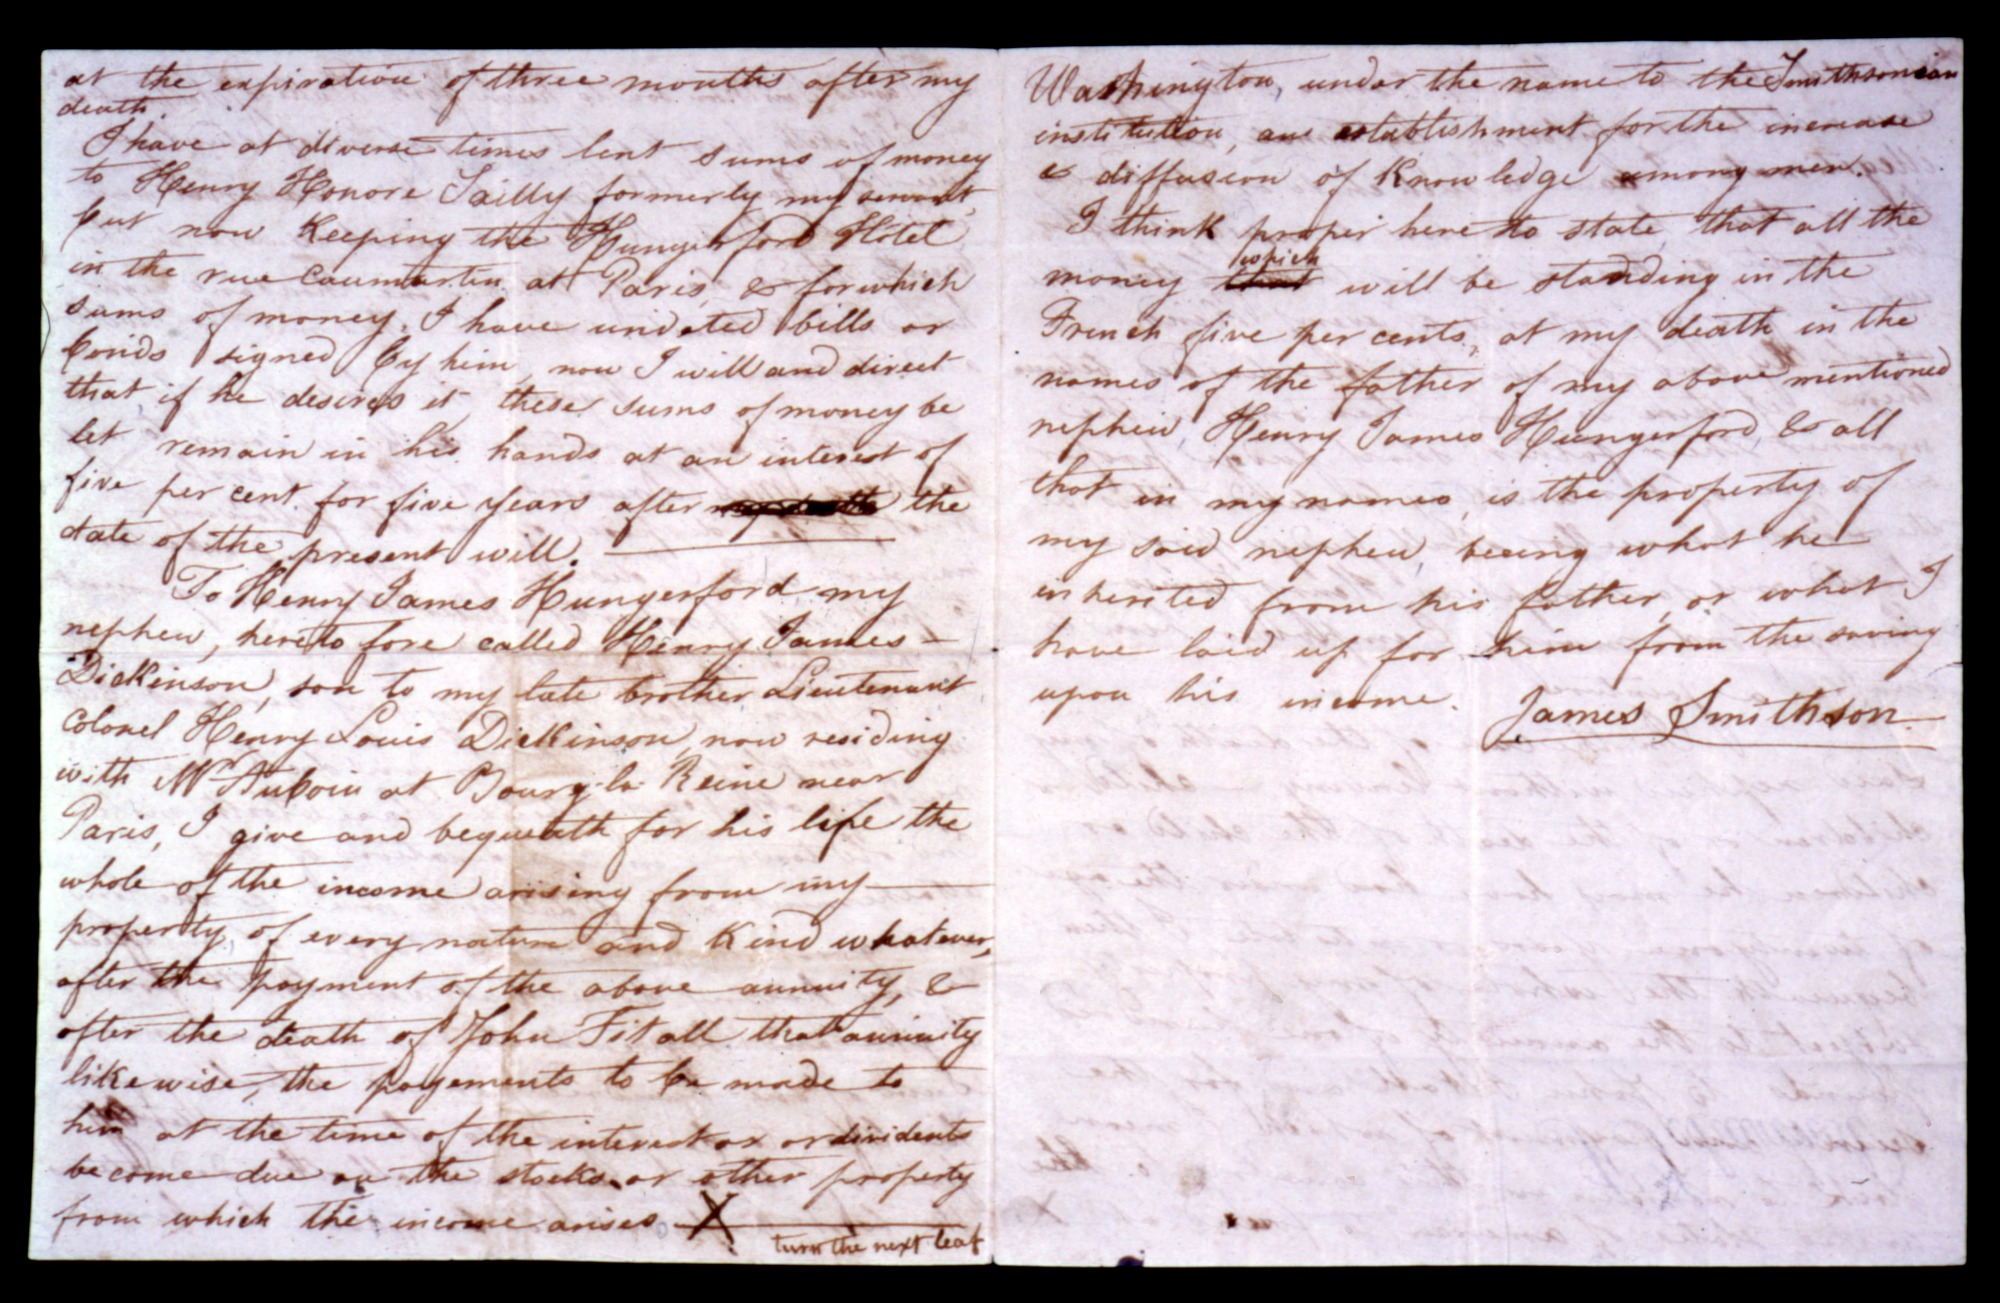 at the expiration of three months after my
death.
I have at diverse times lent sums of money
to Henry Honore Sailly formerly my servant,
but now keeping the Hungerford Hotel
in the rue Caumartin at Paris, & for which
sums of money, I have undated bills or
bonds signed by him, now I will and direct
that if he desires it, these sums of money be
let remain in his hands at an interest of
five per cent. for five years after my death the
date of the present will.
To Henry James Hungerford, my
nephew, heretofore called Henry James
Dickinson, son to my late brother Lieutenant
Colonel Henry Louis Dickinson, now residing
with Mr Auboin at Bourg la Reine near
Paris, I give and bequeath for his life the
whole of the income arising from my
property of every nature and kind whatever,
after the payment of the above annuity, &
after the death of John Fitall that annuity
likewise, the payements to be made to
him at the time of the interest or dividents
become due on the stocks or other property
from which the income arises X
turn the next leaf
Washington, under the name to the Smithsonian
institution, an establishment for the increase
& diffusion of Knowledge among men.
I think proper here to state, that all the
which
money that will be standing in the
French five per cents, at my death in the
names of the father of my above mentioned
nephew, Henry James Hungerford, & all
that in my names, is the property of
my said nephew, being what he
inherited from his father, or what I
have laid up for him from the saving
upon his income.
James Smithson.